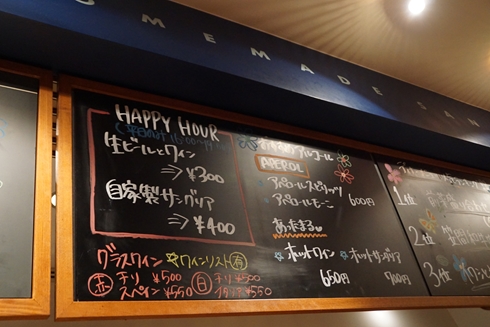 OMEMADE SAN
HAPPY HOUR
生ビールとワイン
⇒¥300
自家製サングリア
⇒¥400
グラスワイン ワインリスト有
赤 チリ ¥500
スペイン ¥550
白 チリ ¥500
¥550
アルコール
APEROL
・アペロールスピリッツ
・アペロールモーニ
600円
あったまる♥
☆ホットワイン
650円
☆ホットサングリア
700円
1位
2位
3位